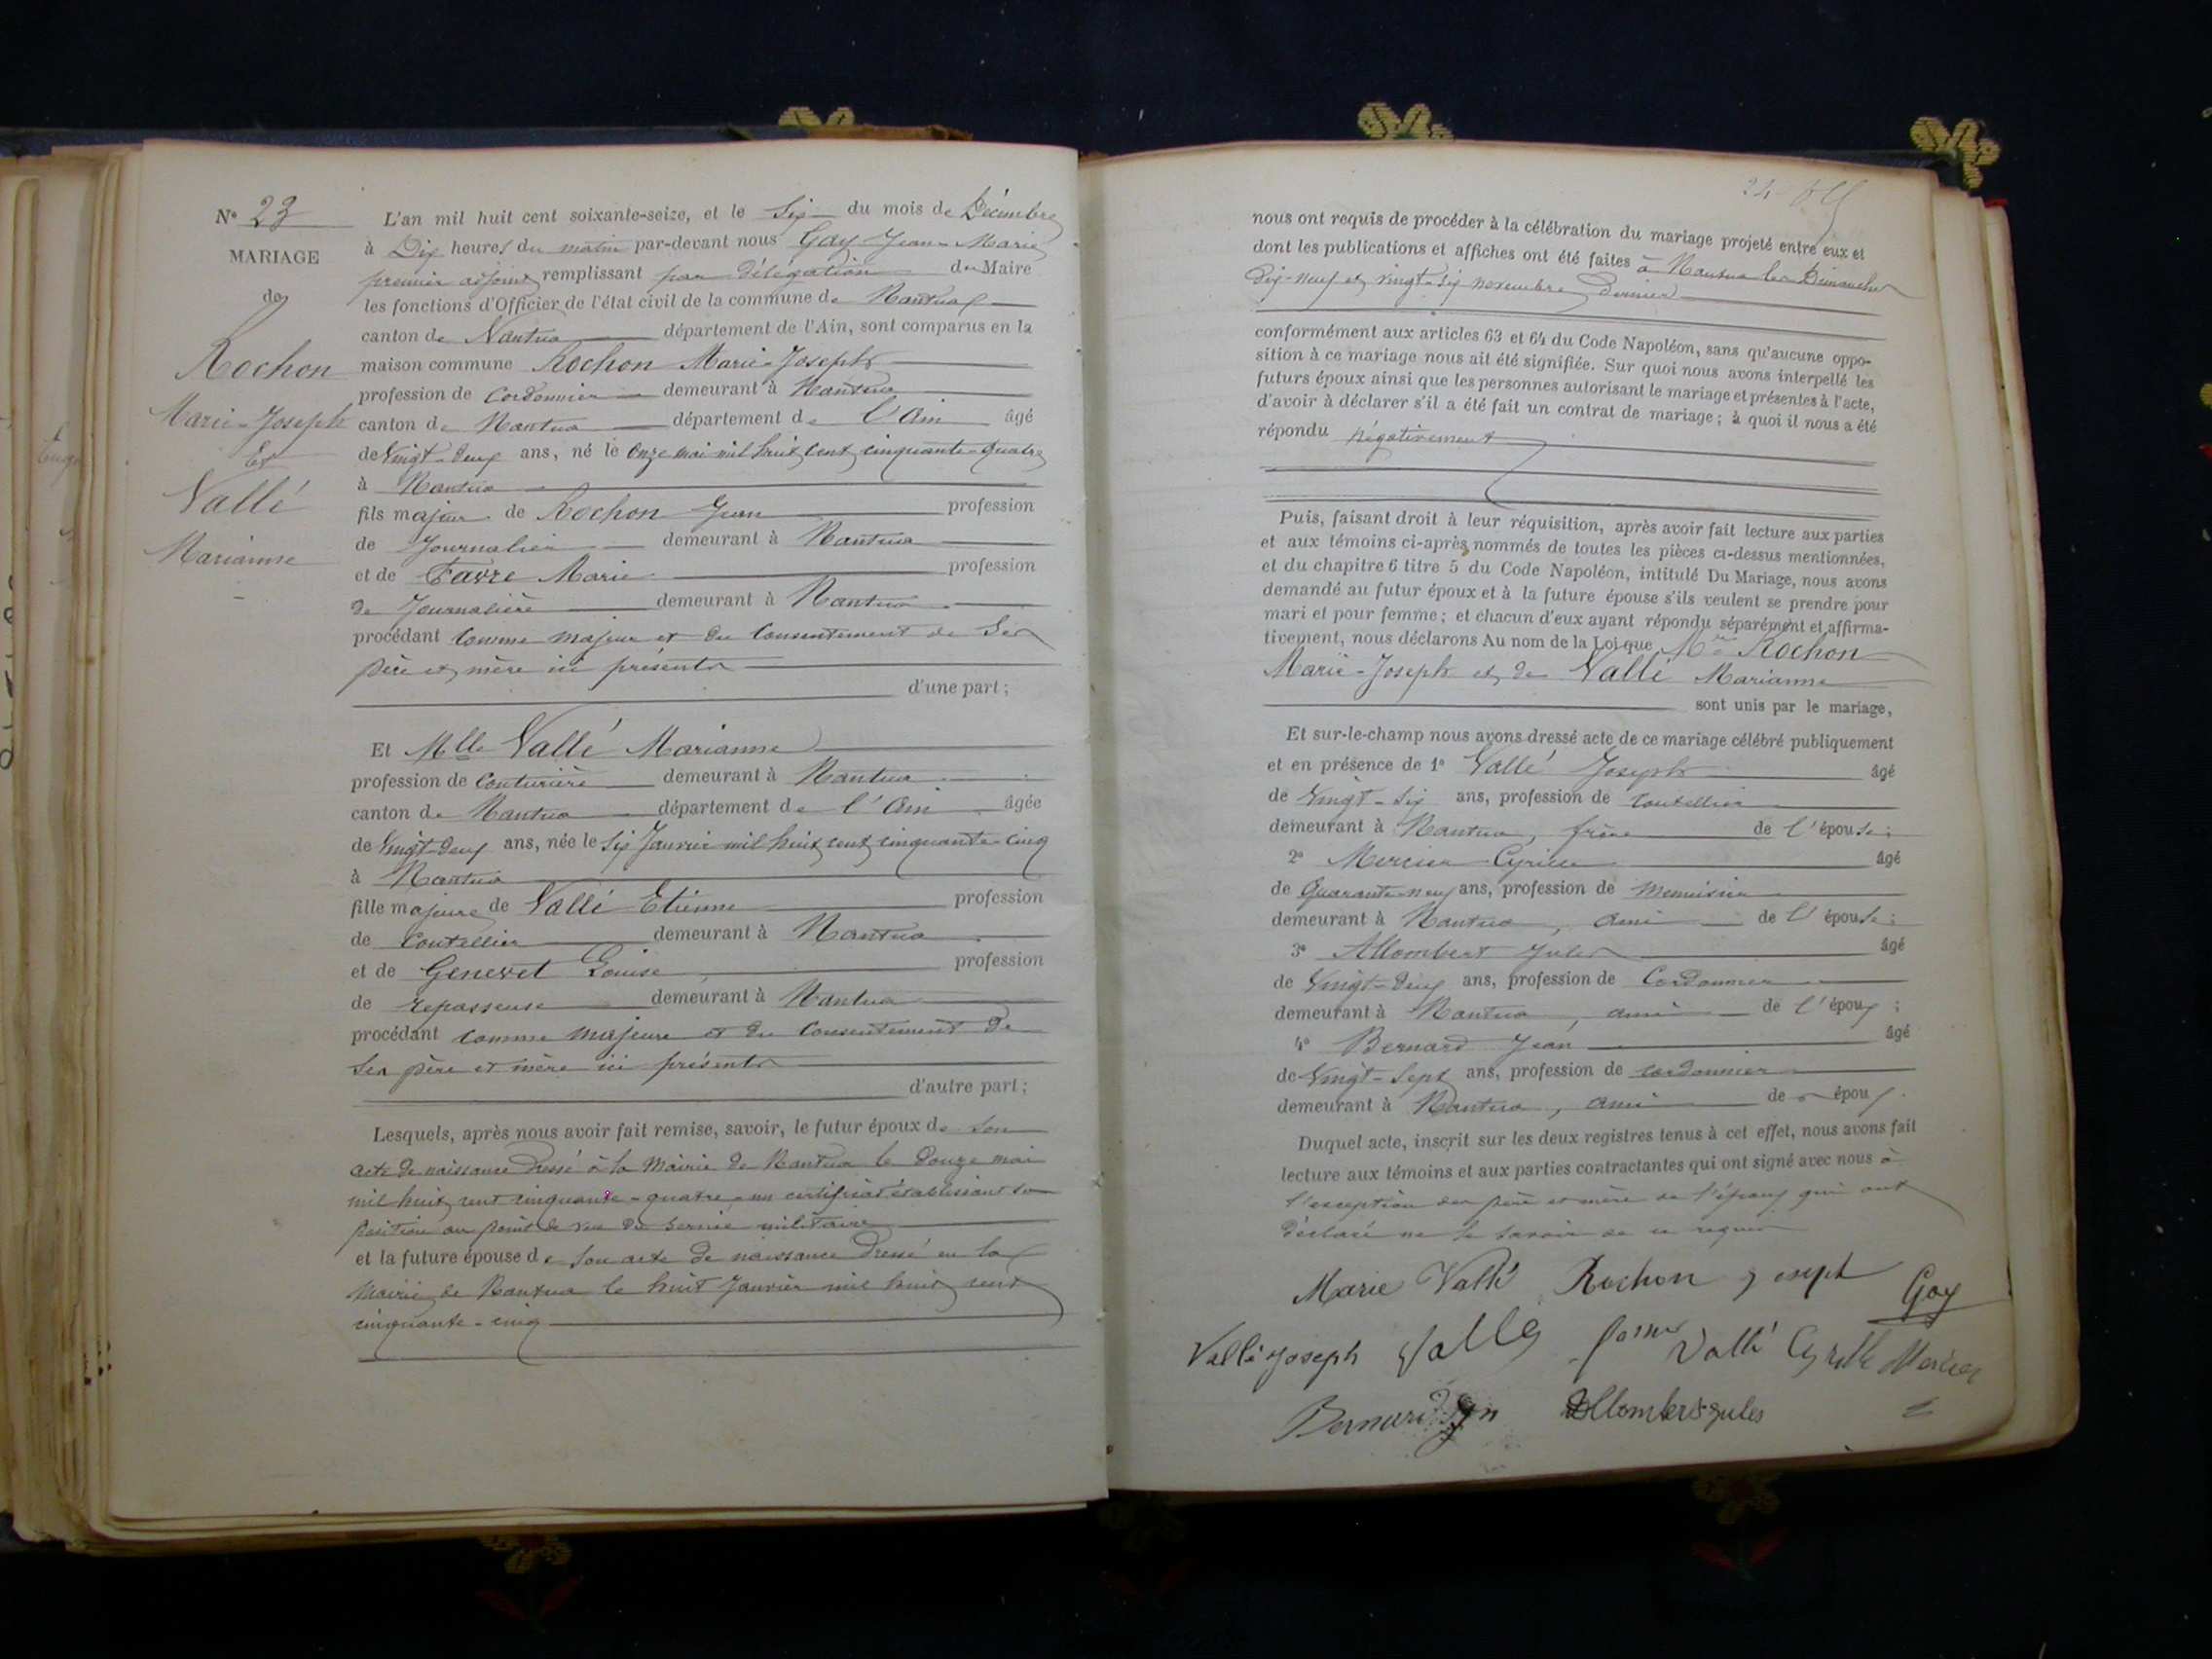 N° 23
MARIAGE
de
Rochon
Marie-Joseph
Et
Vallé
Marianne
L'an mil huit cent soixante-seize, et le Six du mois de Décembre
à Dix heures du matin par-devant nous Gay Jean-Marie
premier adjoint remplissant par délégation du Maire
les fonctions d'Officier de l'état civil de la commune de Nantua
canton de Nantua département de l'Ain, sont comparus en la
maison commune Rochon Marie-Joseph
profession de Cordonnier demeurant à Nantua
canton de Nantua département de l'Ain âgé
de Vingt-deux ans, né le Onze mai mil huit cent cinquante-quatre
à Nantua
fils majeur de Rochon Jean profession
de Journalier demeurant à Nantua
et de Favre Marie profession
de Journalière demeurant à Nantua
procédant comme majeur et du consentement de ses
père et mère ici présents
d'une part ;
Et Mlle Vallé Marianne
profession de Couturière demeurant à Nantua
canton de Nantua département de l'Ain âgée
de Vingt-deux ans, née le Six Janvier mil huit cent cinquante-cinq
à Nantua
fille majeure de Vallé Etienne profession
de Coutellier demeurant à Nantua
et de Genevet Louise profession
de repasseuse demeurant à Nantua
procédant comme majeure et du consentement de
ses père et mère ici présents
d'autre part ;
Lesquels, après nous avoir fait remise, savoir, le futur époux de son
acte de naissance dressé à la Mairie de Nantua le douze mai
mil huit cent cinquante-quatre, un certificat établissant sa
position au point de vue du service militaire
et la future épouse de son acte de naissance dressé en la
Mairie de Nantua le huit Janvier mil huit cent
cinquante-cinq
nous ont requis de procéder à la célébration du mariage projeté entre eux et
dont les publications et affiches ont été faites à Nantua les Dimanches
dix-neuf et vingt-six novembre dernier
conformément aux articles 63 et 64 du Code Napoléon, sans qu'aucune oppo-
sition à ce mariage nous ait été signifiée. Sur quoi nous avons interpellé les
futurs époux ainsi que les personnes autorisant le mariage et présentes à l'acte,
d'avoir à déclarer s'il a été fait un contrat de mariage ; à quoi il nous a été
répondu négativement
Puis, faisant droit à leur réquisition, après avoir fait lecture aux parties
et aux témoins ci-après nommés de toutes les pièces ci-dessus mentionnées,
et du chapitre 6 titre 5 du Code Napoléon, intitulé Du Mariage, nous avons
demandé au futur époux et à la future épouse s'ils veulent se prendre pour
mari et pour femme ; et chacun d'eux ayant répondu séparément et affirma-
tivement, nous déclarons Au nom de la Loi que Rochon
Marie-Joseph et de Vallé Marianne
sont unis par le mariage,
Et sur-le-champ nous avons dressé acte de ce mariage célébré publiquement
et en présence de 1° Vallé Joseph âgé
de Vingt-six ans, profession de Coutellier
demeurant à Nantua, frère de l'épouse ;
2° Mercier Cyrille âgé
de Quarante-neuf ans, profession de Menuisier
demeurant à Nantua, ami de l'épouse ;
3° Allombert Jules âgé
de Vingt-deux ans, profession de Cordonnier
demeurant à Nantua, ami de l'époux ;
4° Bernard Jean âgé
de Vingt-Sept ans, profession de cordonnier
demeurant à Nantua, ami de époux.
Duquel acte, inscrit sur les deux registres tenus à cet effet, nous avons fait
lecture aux témoins et aux parties contractantes qui ont signé avec nous à
l'exception des père et mère de l'époux qui ont
déclaré ne le savoir de ce requis
Marie Vallé Rochon Joseph Gay
Vallé Joseph Vallé Vallé Cyrille Mercier
Bernard Jean Allombert Jules